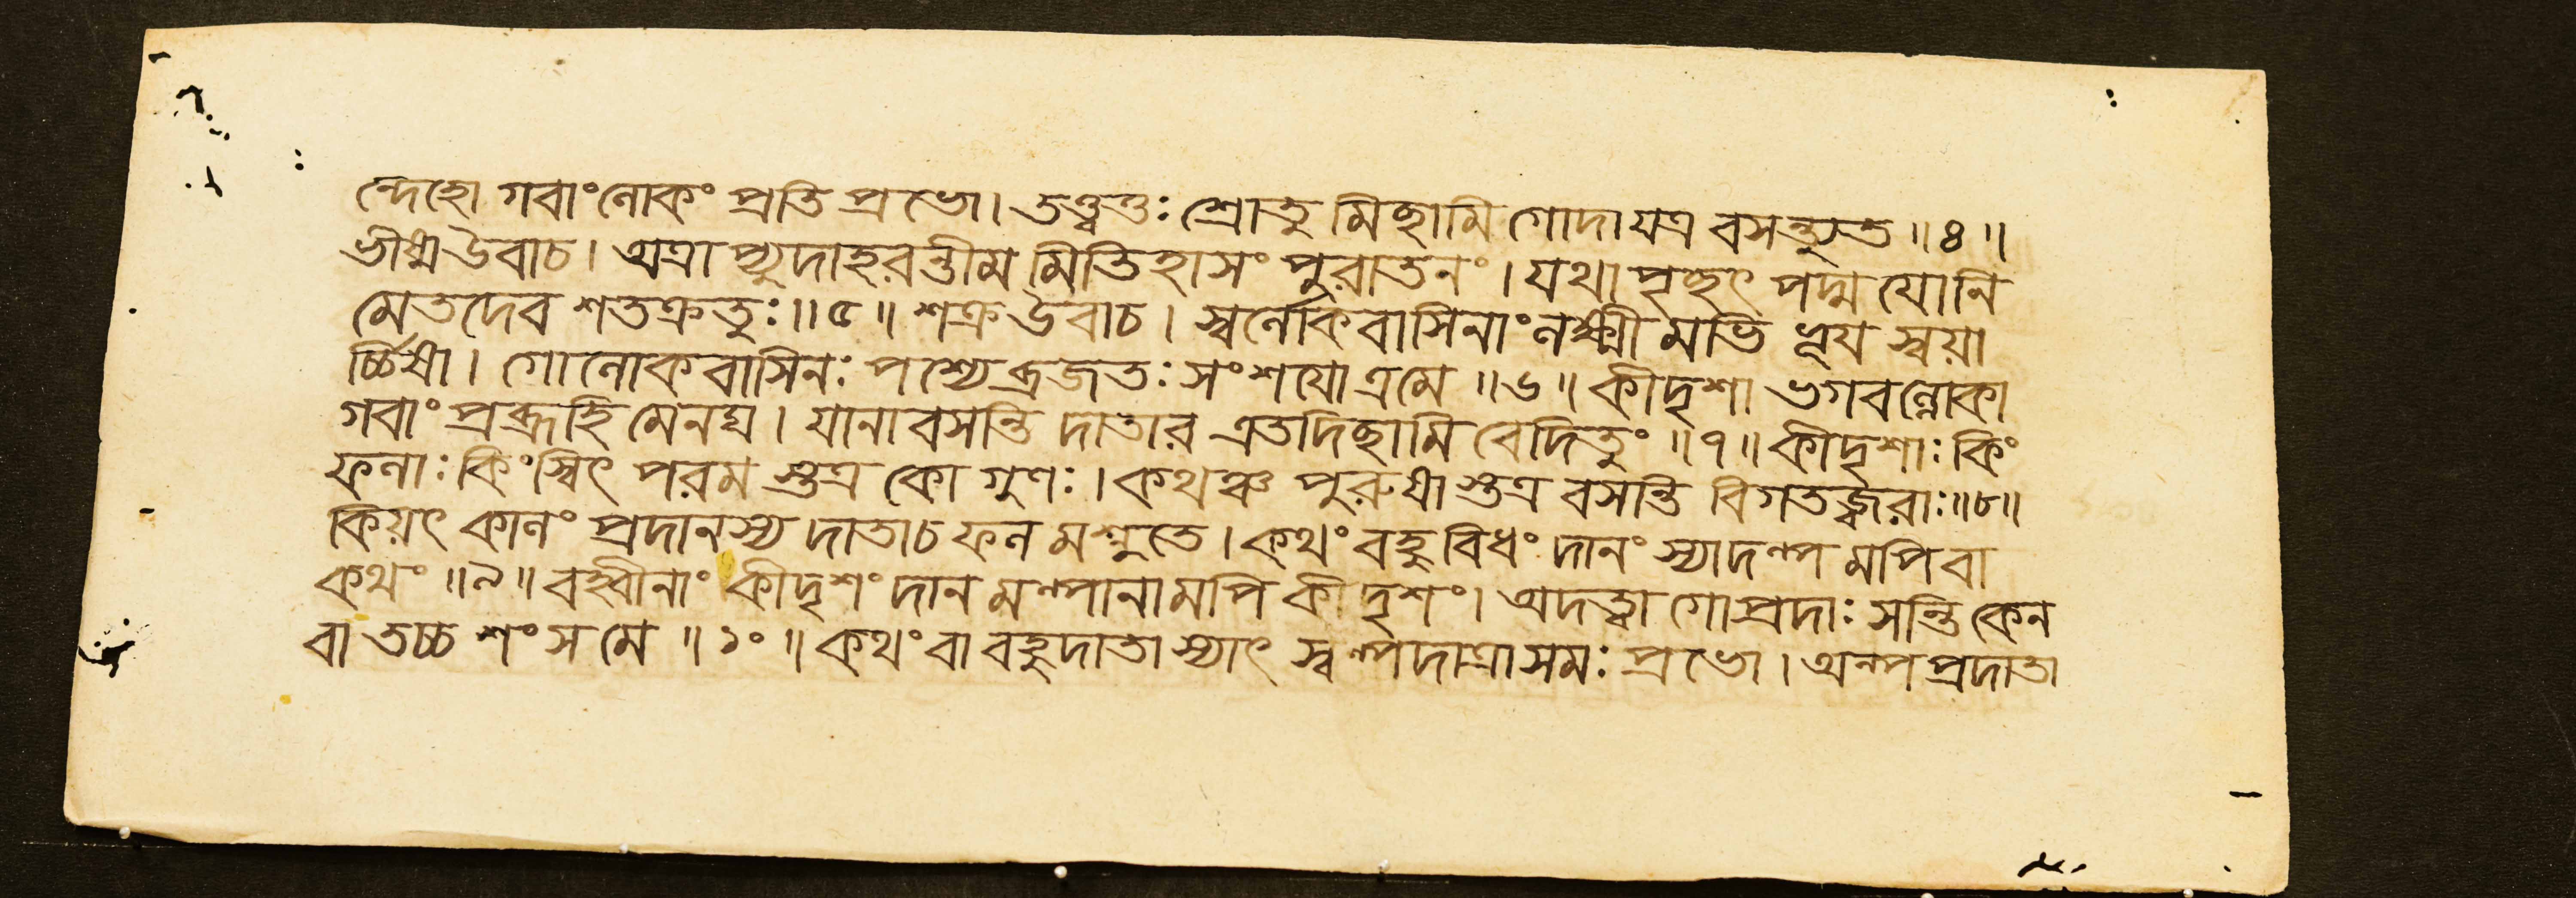 ন্দেহো গবাংলোকং প্রতি প্রভো। তত্ত্বতঃ শ্রোতু মিচ্ছামি গোদা যত্র বসন্ত্যুত॥৪॥
ভীষ্মউবাচ। অত্রা প্যুদাহরন্তীম মিতিহাসং পুরাতনং। যথা পৃচ্ছৎ পদ্ম যোনি
মেতদেব শতক্রতুঃ॥৫॥ শক্র উবাচ। স্বর্লোকবাসিনাং লক্ষ্মী মভি ভূয় স্বয়া
র্চ্চিষা। গোলোকবাসিনঃ পশ্যে ব্রজতঃ সংশযো ত্রমে॥৬॥ কীদৃশা ভগবল্লোকা
গবাং প্রব্রূহি মেনঘ। যানা বসন্তি দাতার এতদিচ্ছামি বেদিতুং॥৭॥ কীদৃশাঃ কিং
ফলাঃ কিংস্বিৎ পরম স্তত্র কো গুণঃ। কথঞ্চ পুরুষা স্তত্র বসন্তি বিগতজ্জ্বরাঃ॥৮॥
কিয়ৎ কালং প্রদানস্য দাতাচ ফল মশ্নুতে। কথং বহুবিধং দানং স্যাদল্প মপি বা
কথং॥৯॥ বহ্বীনাং কীদৃশং দান মল্পানামপি কীদৃশং। অদত্ত্বা গোপ্রদাঃ সন্তি কেন
বা তচ্চ শংস মে॥১০॥ কথং বা বহুদাতা স্যাৎ স্বল্পদাত্রাসমঃ প্রভো। অল্প প্রদাতা